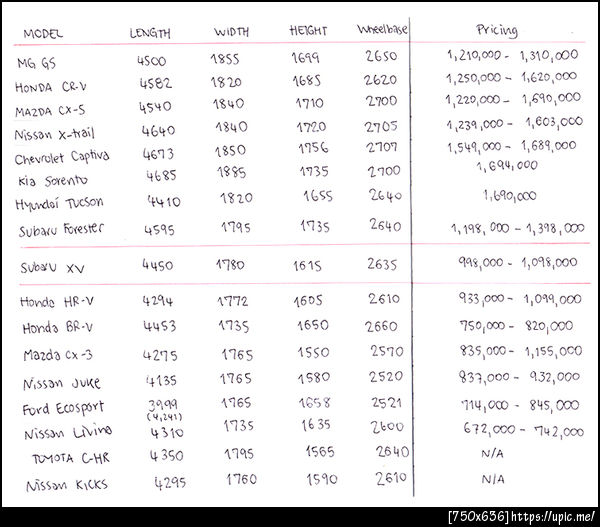 MODEL LENGTH WIDTH HEIGHT Wheelbase Pricing
MG GS 4500 1855 1699 2650 1,210,000 - 1,310,000
HONDA CR-V 4582 1820 1685 2620 1,250,000 - 1,620,000
MAZDA CX-5 4540 1840 1710 2700 1,220,000 - 1,690,000
Nissan X-trail 4640 1840 1720 2705 1,239,000 - 1,603,000
Chevrolet Captiva 4673 1850 1756 2707 1,549,000 - 1,689,000
Kia Sorento 4685 1885 1735 2700 1,694,000
Hyundai Tucson 4410 1820 1655 2640 1,690,000
Subaru Forester 4595 1795 1735 2640 1,198,000 - 1,398,000
Subaru XV 4450 1780 1615 2635 998,000 - 1,098,000
Honda HR-V 4294 1772 1605 2610 933,000 - 1,099,000
Honda BR-V 4453 1735 1650 2660 750,000 - 820,000
Mazda CX-3 4275 1765 1550 2570 835,000 - 1,155,000
Nissan Juke 4135 1765 1580 2520 837,000 - 932,000
Ford Ecosport 3999 1765 1658 2521 714,000 - 845,000
(4,241)
Nissan Livina 4310 1735 1635 2600 672,000 - 742,000
TOYOTA C-HR 4350 1795 1565 2640 N/A
Nissan KICKS 4295 1760 1590 2610 N/A
[750x636]https://upic.me/